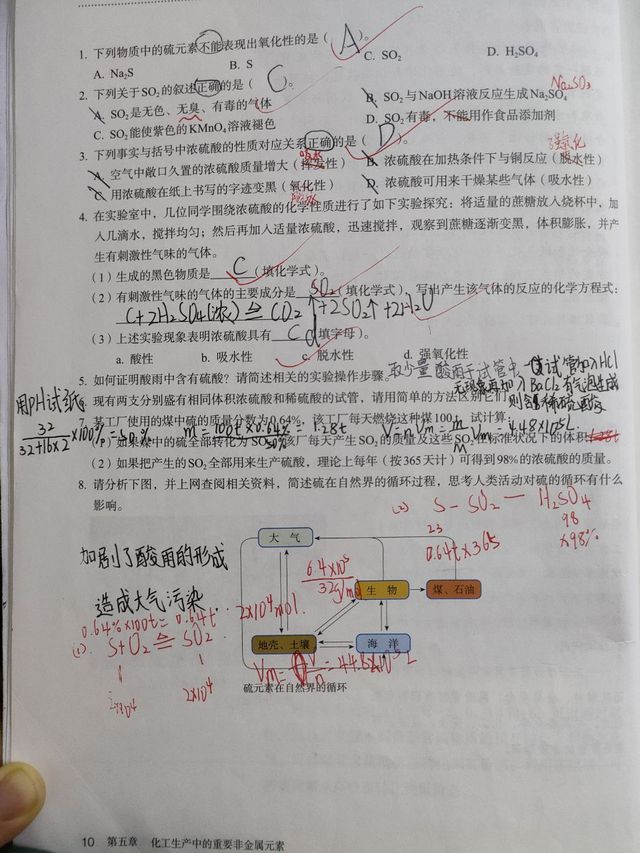 1. 下列物质中的硫元素不能表现出氧化性的是（ A ）。
A. Na₂S B. S C. SO₂ D. H₂SO₄
2. 下列关于SO₂的叙述正确的是（ C ）。
Na₂SO₃
A. SO₂是无色、无臭、有毒的气体 B. SO₂与NaOH溶液反应生成Na₂SO₄
C. SO₂能使紫色的KMnO₄溶液褪色 D. SO₂有毒，不能用作食品添加剂
3. 下列事实与括号中浓硫酸的性质对应关系正确的是（ D ）。
强氧化
A. 空气中敞口久置的浓硫酸质量增大（挥发性） B. 浓硫酸在加热条件下与铜反应（脱水性）
C. 用浓硫酸在纸上书写的字迹变黑（氧化性） D. 浓硫酸可用来干燥某些气体（吸水性）
4. 在实验室中，几位同学围绕浓硫酸的化学性质进行了如下实验探究：将适量的蔗糖放入烧杯中，加
入几滴水，搅拌均匀；然后再加入适量浓硫酸，迅速搅拌，观察到蔗糖逐渐变黑，体积膨胀，并产
生有刺激性气味的气体。
（1）生成的黑色物质是 C （填化学式）。
（2）有刺激性气味的气体的主要成分是 SO₂ （填化学式），写出产生该气体的反应的化学方程式：
C+2H₂SO₄(浓) ≜ CO₂↑+2SO₂↑+2H₂O
（3）上述实验现象表明浓硫酸具有 cd （填字母）。
a. 酸性 b. 吸水性 c. 脱水性 d. 强氧化性
5. 如何证明酸雨中含有硫酸？请简述相关的实验操作步骤。
取少量酸雨于试管中
试管加入HCl
无现象再加入BaCl₂
现有两支分别盛有相同体积浓硫酸和稀硫酸的试管，请用简单的方法区别它们
用pH试纸
7. 某工厂使用的煤中硫的质量分数为0.64%，该工厂每天燃烧这种煤100 t，试计算：
32/(32+16×2)×100%=50%
m=100t×0.64%/50%=1.28t
V=n·Vm=m/M·Vm=4.48×10⁵L
（1）如果煤中的硫全部转化为SO₂，该厂每天产生SO₂的质量及这些SO₂在标准状况下的体积
（2）如果把产生的SO₂全部用来生产硫酸，理论上每年（按365天计）可得到98%的浓硫酸的质量。
8. 请分析下图，并上网查阅相关资料，简述硫在自然界的循环过程，思考人类活动对硫的循环有什么
影响。
(2) S—SO₂—H₂SO₄
98
0.64t×365 ×98%
加剧了酸雨的形成
造成大气污染
大气
生物
煤、石油
地壳、土壤
海洋
32g/mol
2×10⁴mol
0.64%×100t=0.64t
(1) S+O₂≜SO₂
1 1
2×10⁴ 2×10⁴
硫元素在自然界的循环
10 第五章 化工生产中的重要非金属元素